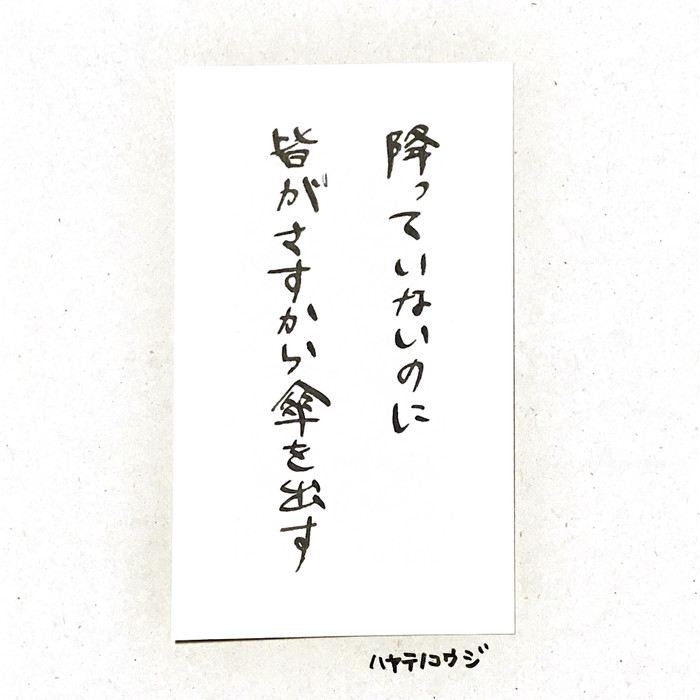 降っていないのに
皆がさすから傘を出す
ハヤテノコウジ